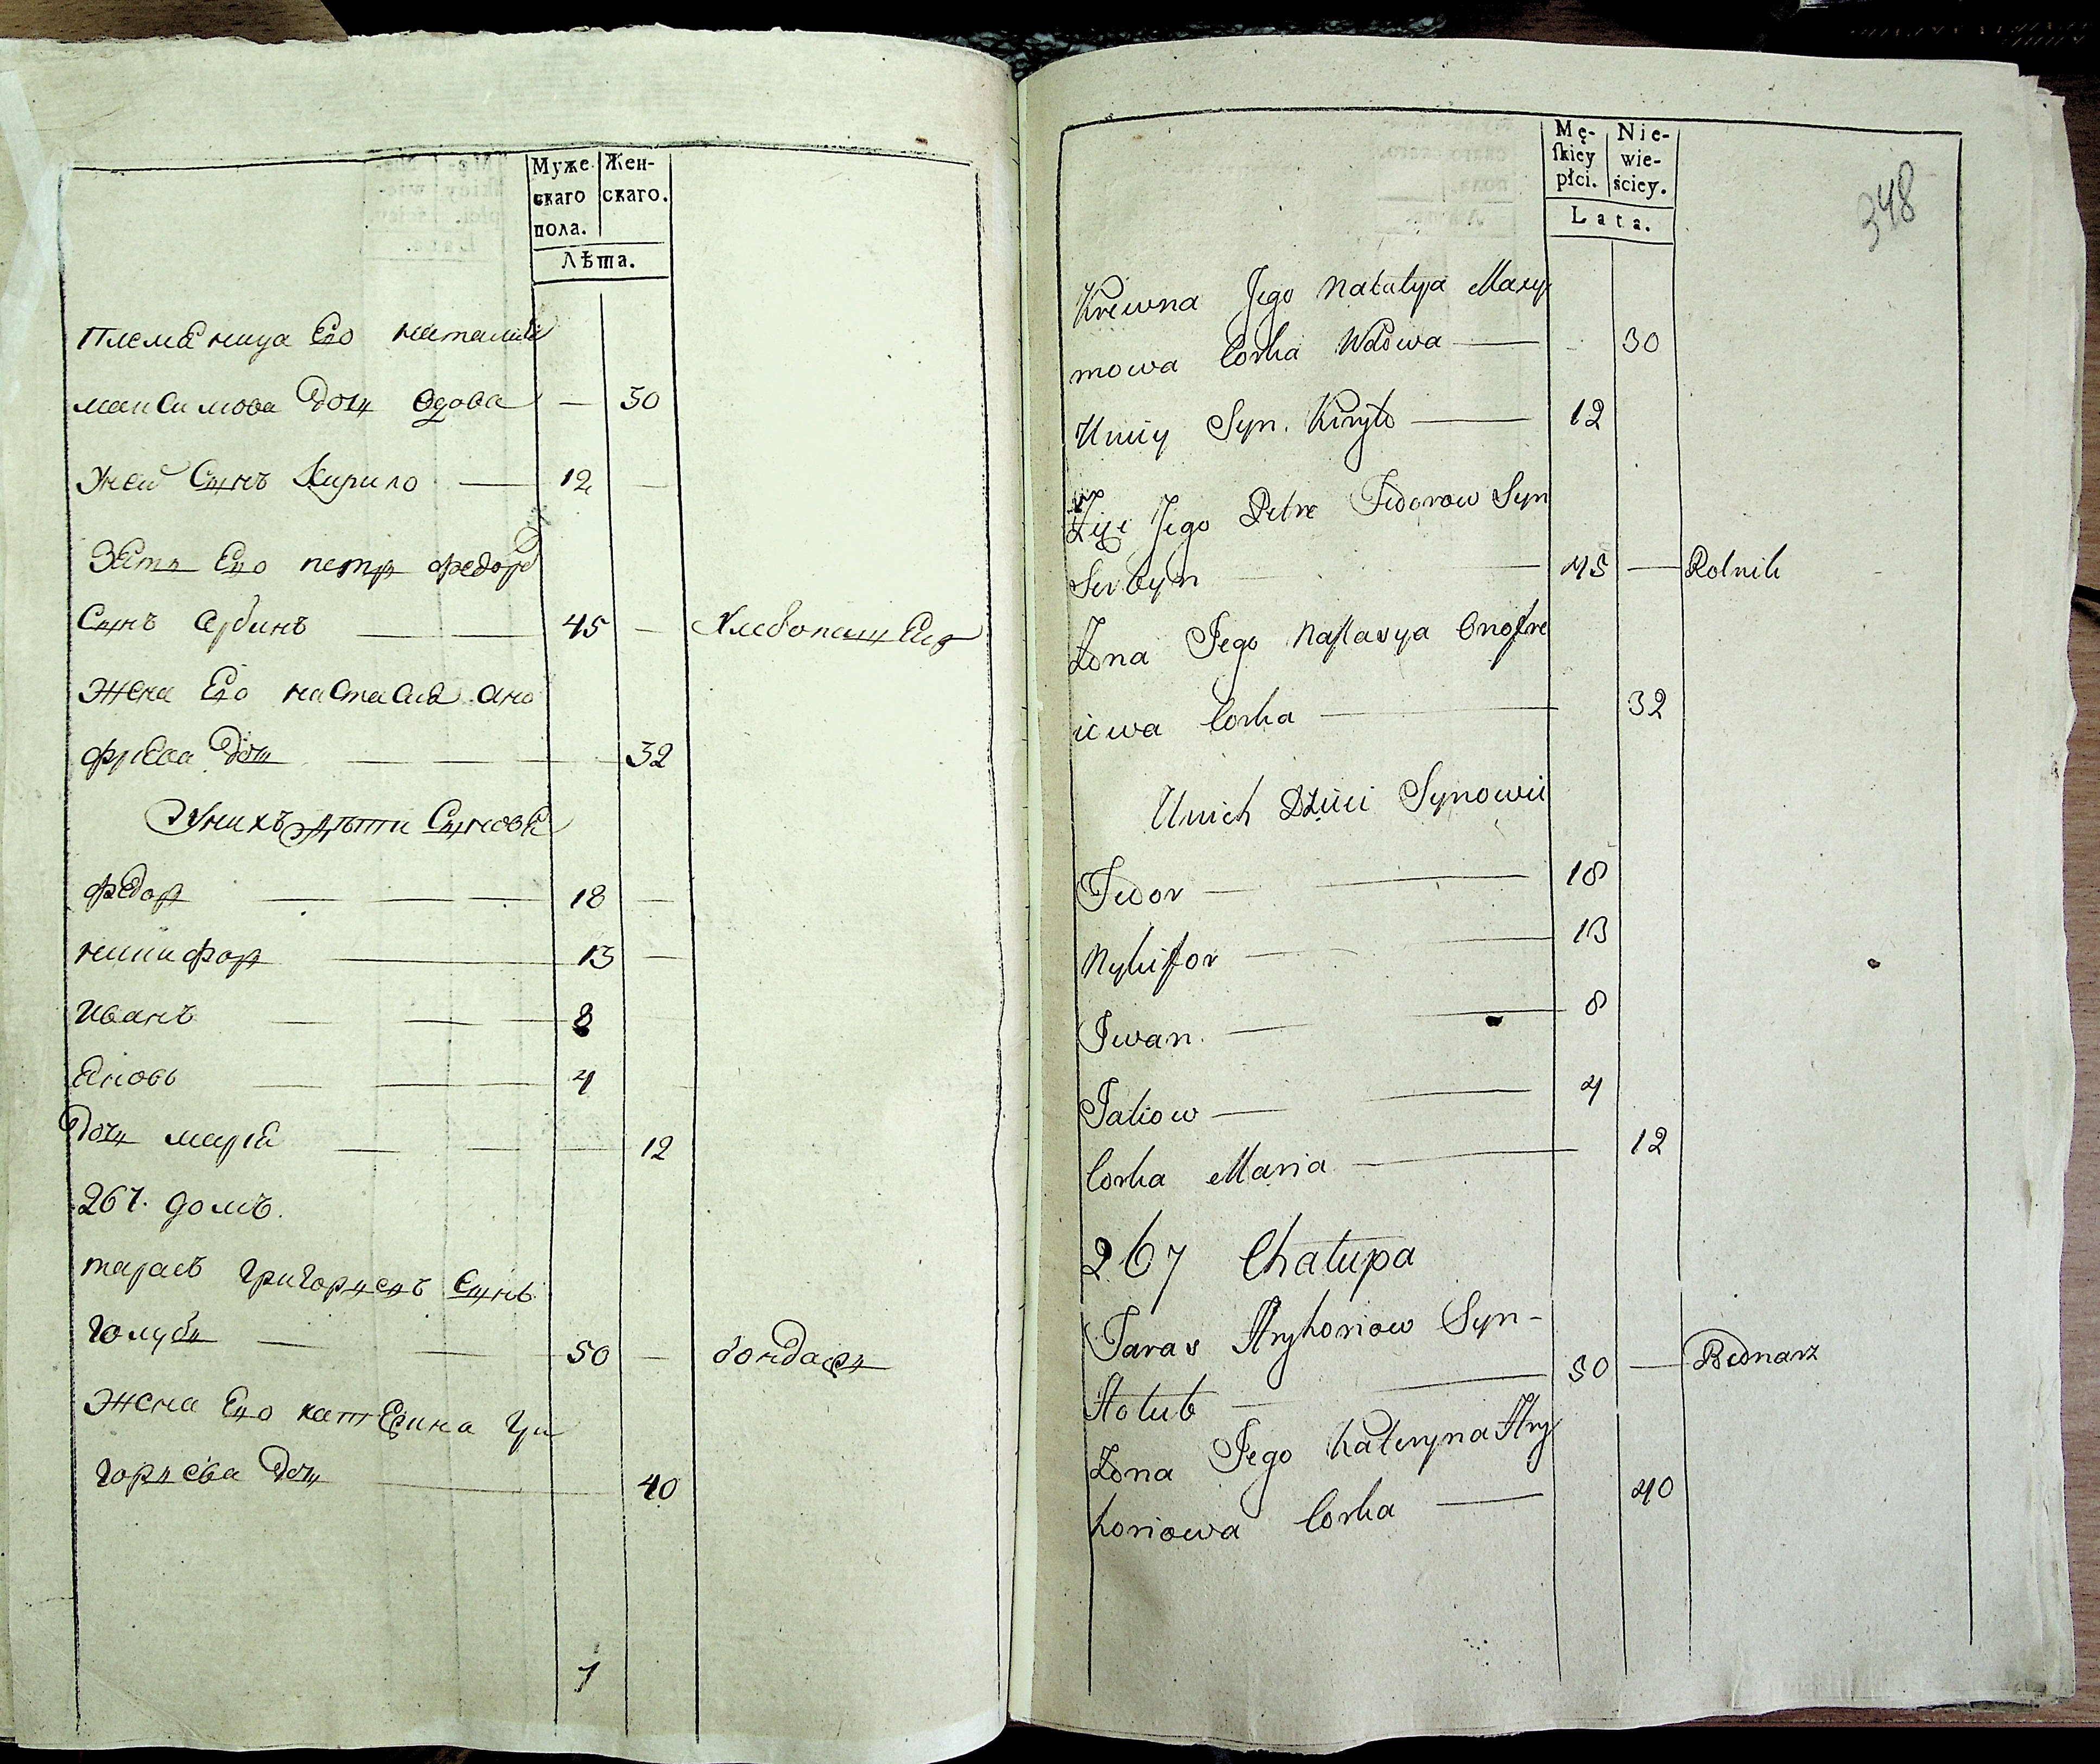 Муже
скаго
пола.
Жен-
скаго.
Лѣта.
Племеница Его наталия
максимова дочь вдова — 30
Унеи Сынъ Кирило — 12 —
Зеть Его петръ федоро
Сынъ Сербинъ — 45 — Хлебопашец
Жена Его настасия оно
фриева дочь — 32
Унихъ дѣти Синове
федор — 18 —
никифор — 13 —
Иванъ — 8
Яковь — 4
Дочь мария — 12
267. домъ.
тарасъ григорьевъ Сынъ
голубь — 50 — бондарь
Жена Его катерина гри
горьева дочь — 40
7
Mę-
skiey
płci.
Nie-
wie-
ściey.
Lata.
348
Krewna Jego Natalya Maxy
mowa Corka Wdowa — 30
Uniey Syn. Kiryło — 12
Zięć Jego Petro Fedorow Syn
Serbyn — 45 — Rolnik
Żona Jego Nastasya Onofre
iewa Corka — 32
Unich Dzieci Synowie
Fedor — 18
Nykifor — 13
Iwan — 8
Jakow — 4
Corka Maria — 12
267 Chałupa
Taras Hryhoriow Syn -
Hołub — 50 — Bednarz
Żona Jego Kateryna Hry
horiowa Corka — 40